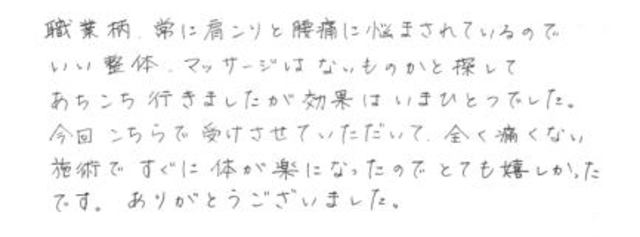 職業柄、常に肩こりと腰痛に悩まされているので
いい整体、マッサージはないものかと探して
あちこち行きましたが効果はいまひとつでした。
今回こちらで受けさせていただいて、全く痛くない
施術ですぐに体が楽になったのでとても嬉しかった
です。ありがとうございました。